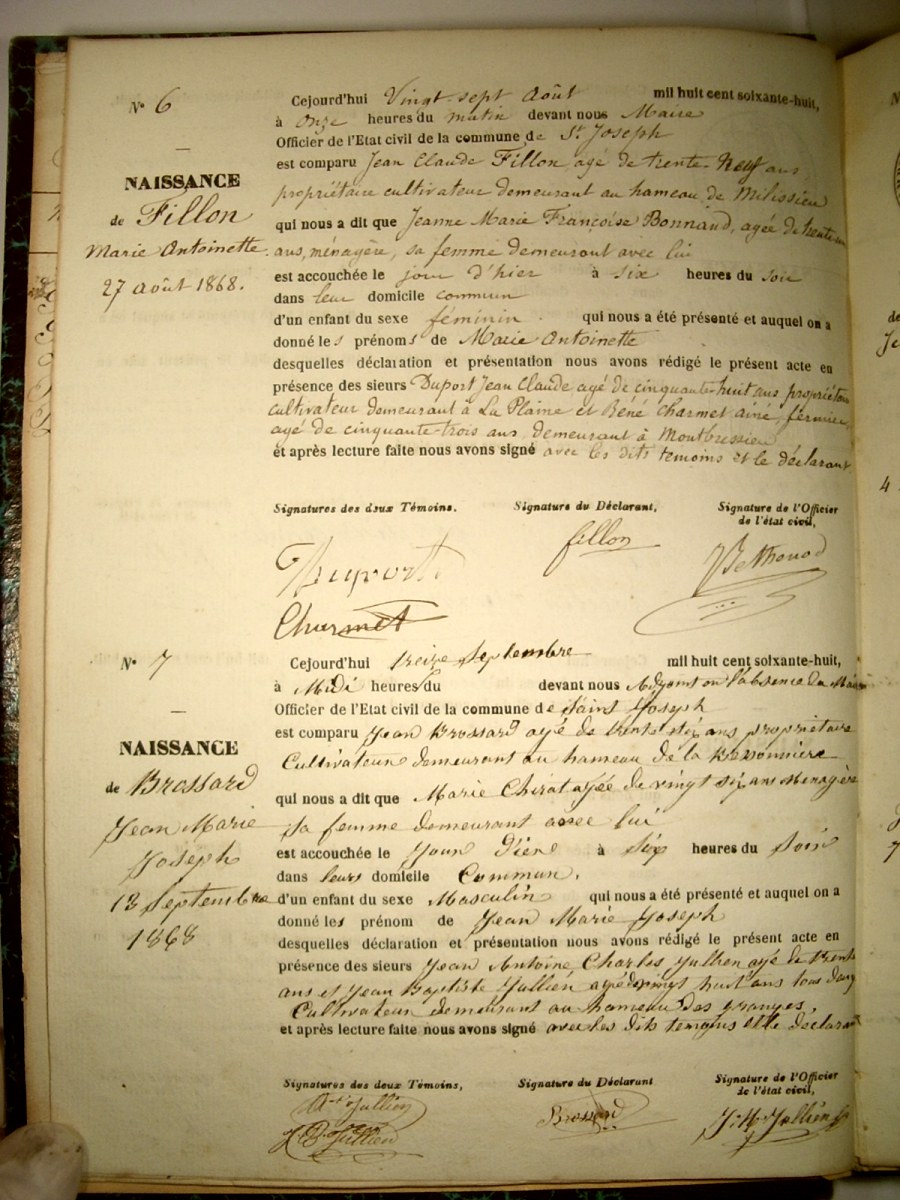 N° 6
NAISSANCE
de Fillon
Marie Antoinette
27 août 1868.
Cejourd'hui Vingt-sept Août mil huit cent soixante-huit,
à onze heures du matin devant nous Maire
Officier de l'Etat civil de la commune de St Joseph
est comparu Jean Claude Fillon, agé de trente-Neuf ans
propriétaire cultivateur demeurant au hameau de Milissieu
qui nous a dit que Jeanne Marie Françoise Bonnand, agée de trente-un
ans, ménagère, sa femme demeurant avec lui
est accouchée le jour d'hier à six heures du soir
dans leur domicile commun
d'un enfant du sexe féminin. qui nous a été présenté et auquel on a
donné les prénoms de Marie Antoinette
desquelles déclaration et présentation nous avons rédigé le présent acte en
présence des sieurs Duport Jean Claude, agé de cinquante-huit ans propriétaire
cultivateur demeurant à La Plaine et Réné Charmet ainé, fermier,
agé de cinquante-trois ans, demeurant à Montbressieu
et après lecture faite nous avons signé avec les dits témoins et le déclarant
Signatures des deux Témoins. Signature du Déclarant, Signature de l'Officier
de l'état civil,
Duport fillon Bethenod
Charmet
N° 7
NAISSANCE
de Brossard
Jean Marie
Joseph
13 Septembre
1868
Cejourd'hui treize Septembre mil huit cent soixante-huit,
à Midi heures du devant nous Adjoint en l'absence du Maire
Officier de l'Etat civil de la commune de Saint Joseph
est comparu Jean Brossard agé de trente six ans propriétaire
Cultivateur demeurant au hameau de la
qui nous a dit que Marie Chirat agée de vingt six ans Menagère
sa femme demeurant avec lui
est accouchée le Jour D'ier à Six heures du Soir
dans leurs domicile Commun.
d'un enfant du sexe Masculin qui nous a été présenté et auquel on a
donné les prénom de Jean Marie Joseph
desquelles déclaration et présentation nous avons rédigé le présent acte en
présence des sieurs Jean Antoine, Charles Jullien agé de trente
ans et Jean Baptiste Jullien agé de vingt huit ans tous deux
Cultivateur demeurant au hameau Des granges,
et après lecture faite nous avons signé avec les dits temoins et le déclarant
Signatures des deux Témoins, Signature du Déclarant Signature de l'Officier
de l'état civil,
Jullien Brossard Jullien
J B Jullien